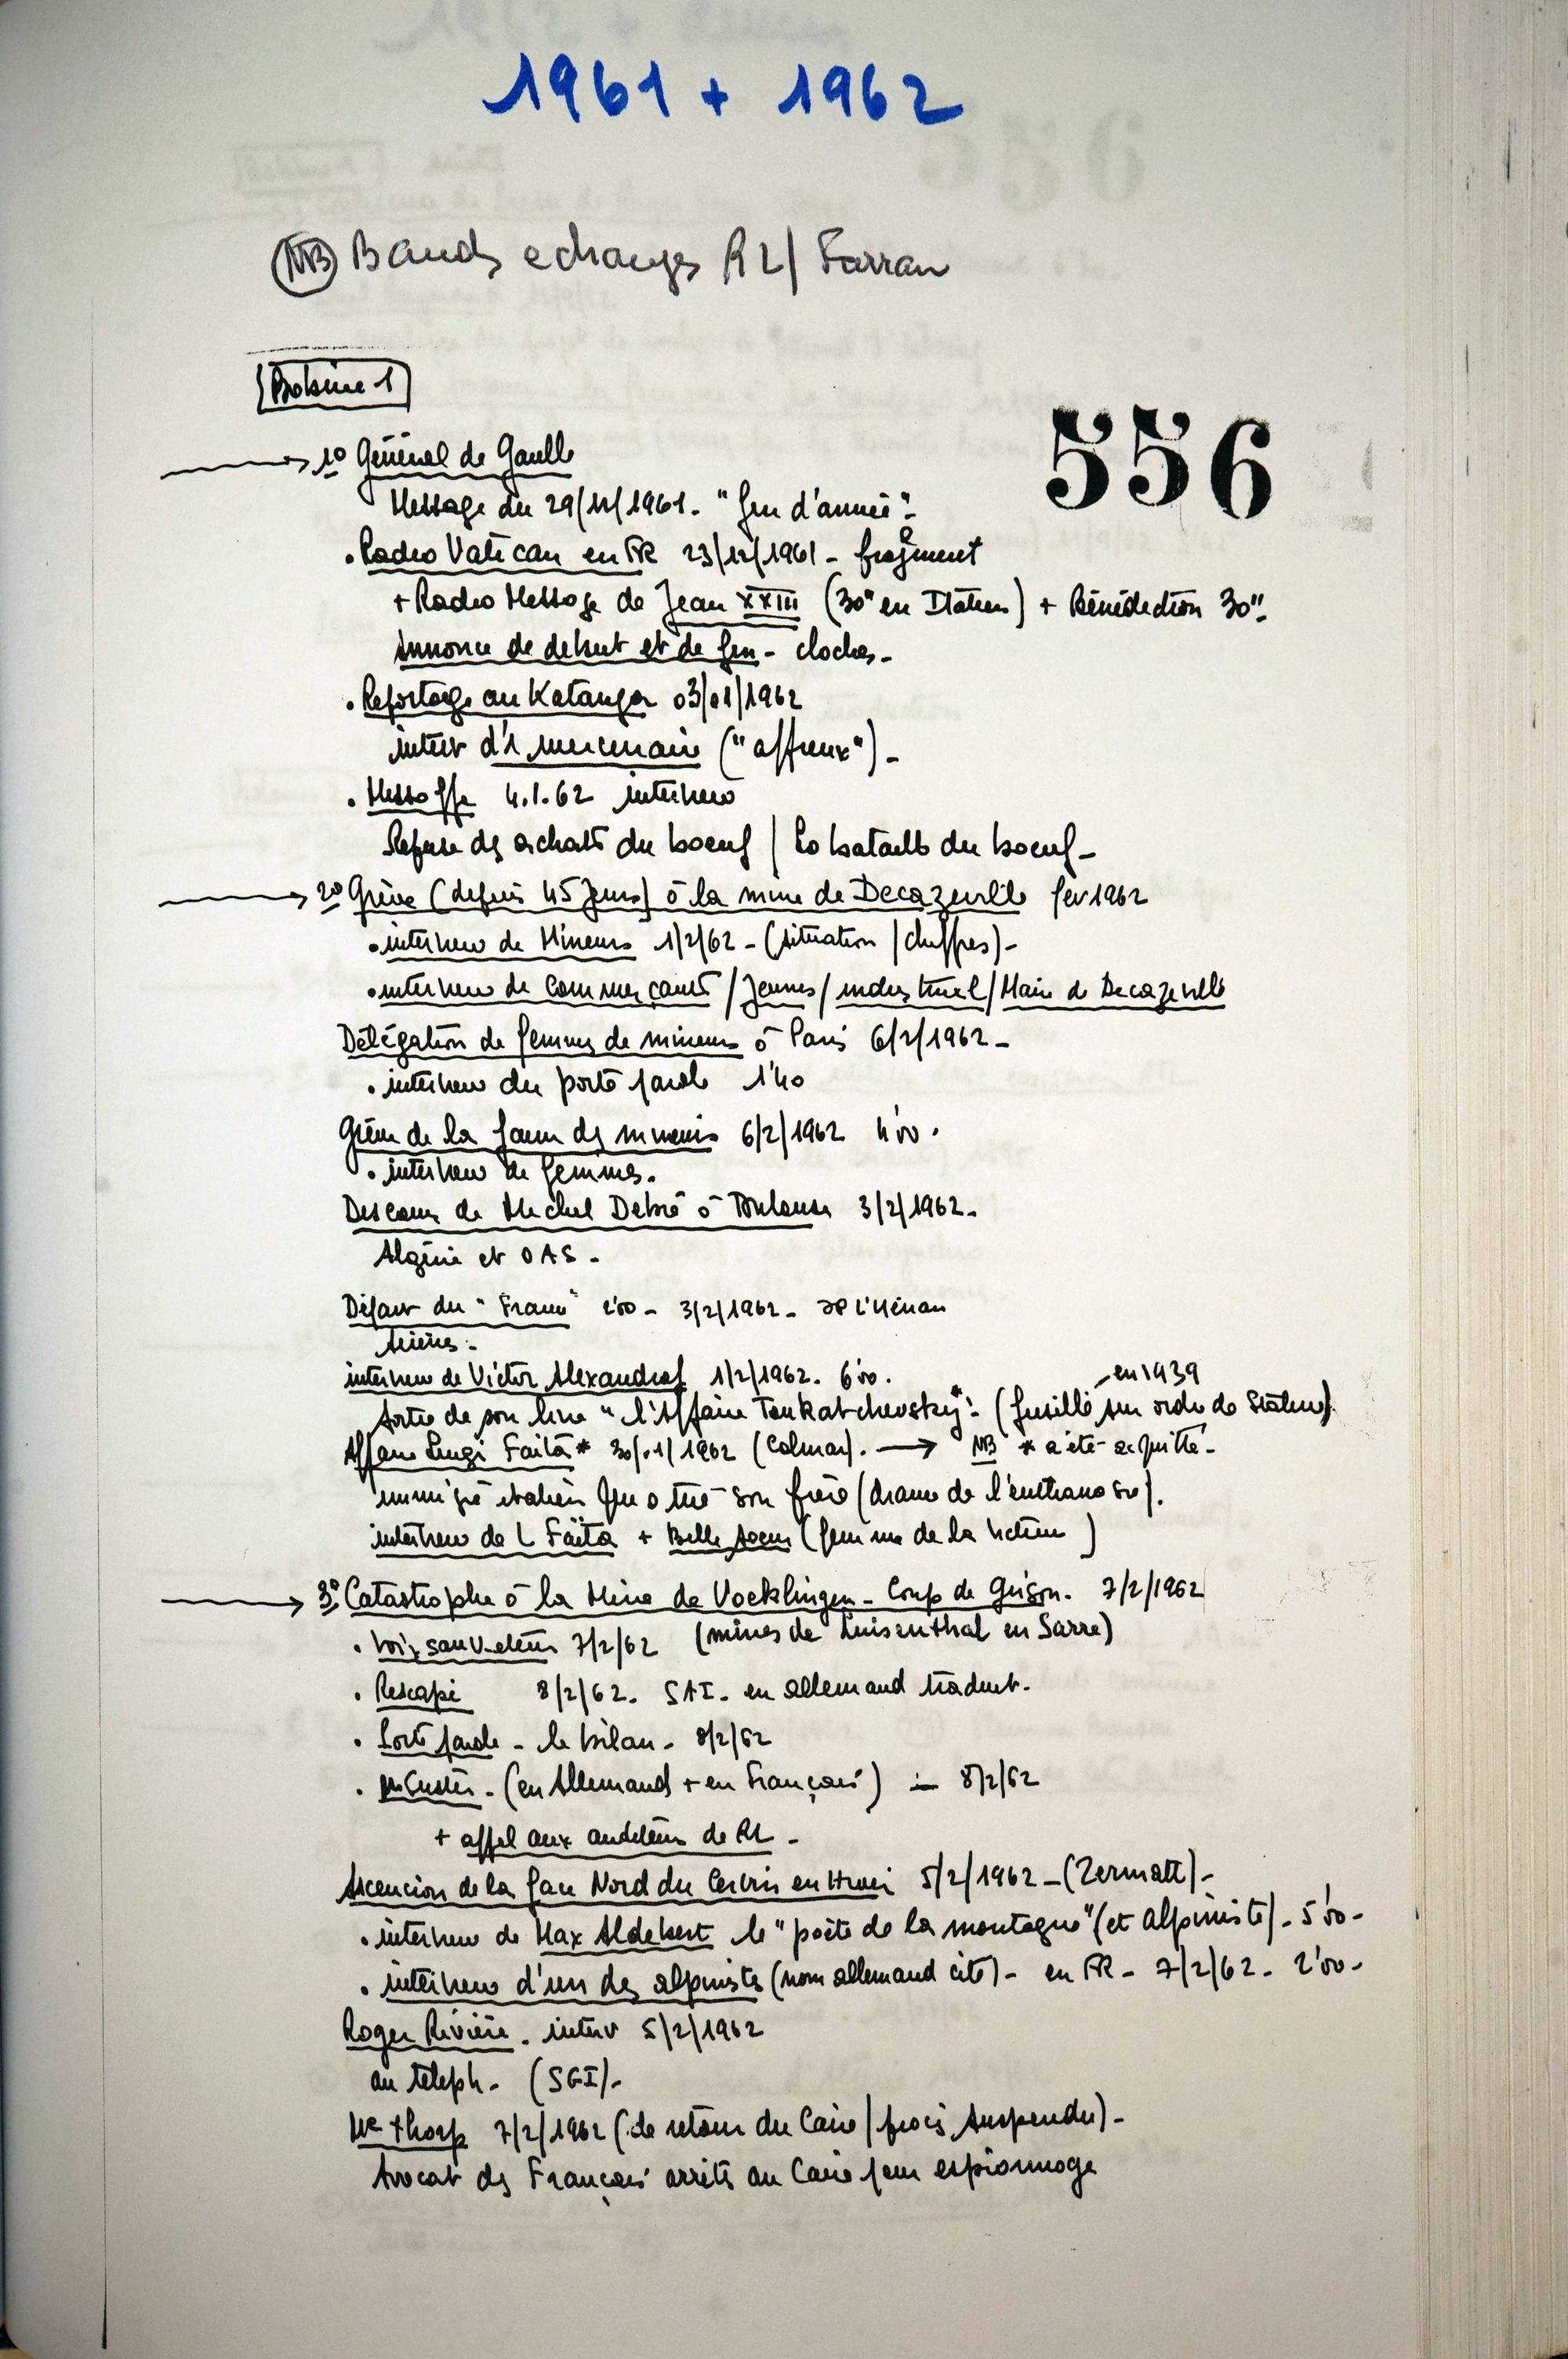 1961 + 1962
NB Bandes echanges RL/ Farran
Bobine 1
556
1º Général de Gaulle
Message du 29/12/1961. "fin d'année".
. Radio Vatican en FR 23/12/1961 - fragment
+ Radio Message de Jean XXIII (30" en Italien) + Bénédiction 30".
Annonce de debut et de fin - cloches -
. Reportage au Katanga 03/01/1962
interv d'1 mercenaire ("affreux") -
. Messoffe 4.1.62 interview
Refuse des achats du boeuf / La bataille du boeuf -
2º Grève (depuis 45 jours) à la mine de Decazeville fev 1962
. interview de Mineurs 1/2/62 - (situation / chiffres) -
. interview de Commerçants / Jeunes / industriel / Maire de Decazeville
Délégation de femmes de mineurs à Paris 6/2/1962 -
. interview du porte parole 1'40
Grève de la faim des mineurs 6/2/1962 4'00.
. interview de femmes.
Discours de Michel Debré à Toulouse 3/2/1962.
Algérie et OAS -
Départ du "France" 2'00 - 3/2/1962 - JP L'Hénan
Sirènes.
interview de Victor Alexandrof 1/2/1962. 6'00.
Sortie de son livre "l'Affaire Toukatchevsky". (fusillé sur ordre de Staline) - en 1939
Affaire Luigi Faïta* 30/01/1962 (Colmar). → NB * a été acquitté -
immigré italien qui a tué son frère (drame de l'euthanasie).
interview de L Faïta + Belle soeur (femme de la victime)
3º Catastrophe à la Mine de Voelklingen - Coup de Grisou. 7/2/1962
. Voix sauveteurs 7/2/62 (mines de Luisenthal en Sarre)
. Rescapé 8/2/62. SAI. en allemand traduit.
. Porte parole - le bilan - 8/2/62
. - (en Allemand + en Français) - 8/2/62
+ appel aux auditeurs de RL -
Ascencion de la face Nord du Cervin en Hiver 5/2/1962 - (Zermatt) -
. interview de Max Aldebert le "poète de la montagne" (et alpiniste) - 5'00 -
. interview d'un des alpinistes (nom allemand cité) - en FR - 7/2/62 - 2'00 -
Roger Rivière. interv 5/2/1962
au téléph - (SGI) -
Me Thorp 7/2/1962 (de retour du Caire / procès suspendu) -
Avocat des Français arrêtés au Caire pour espionnage